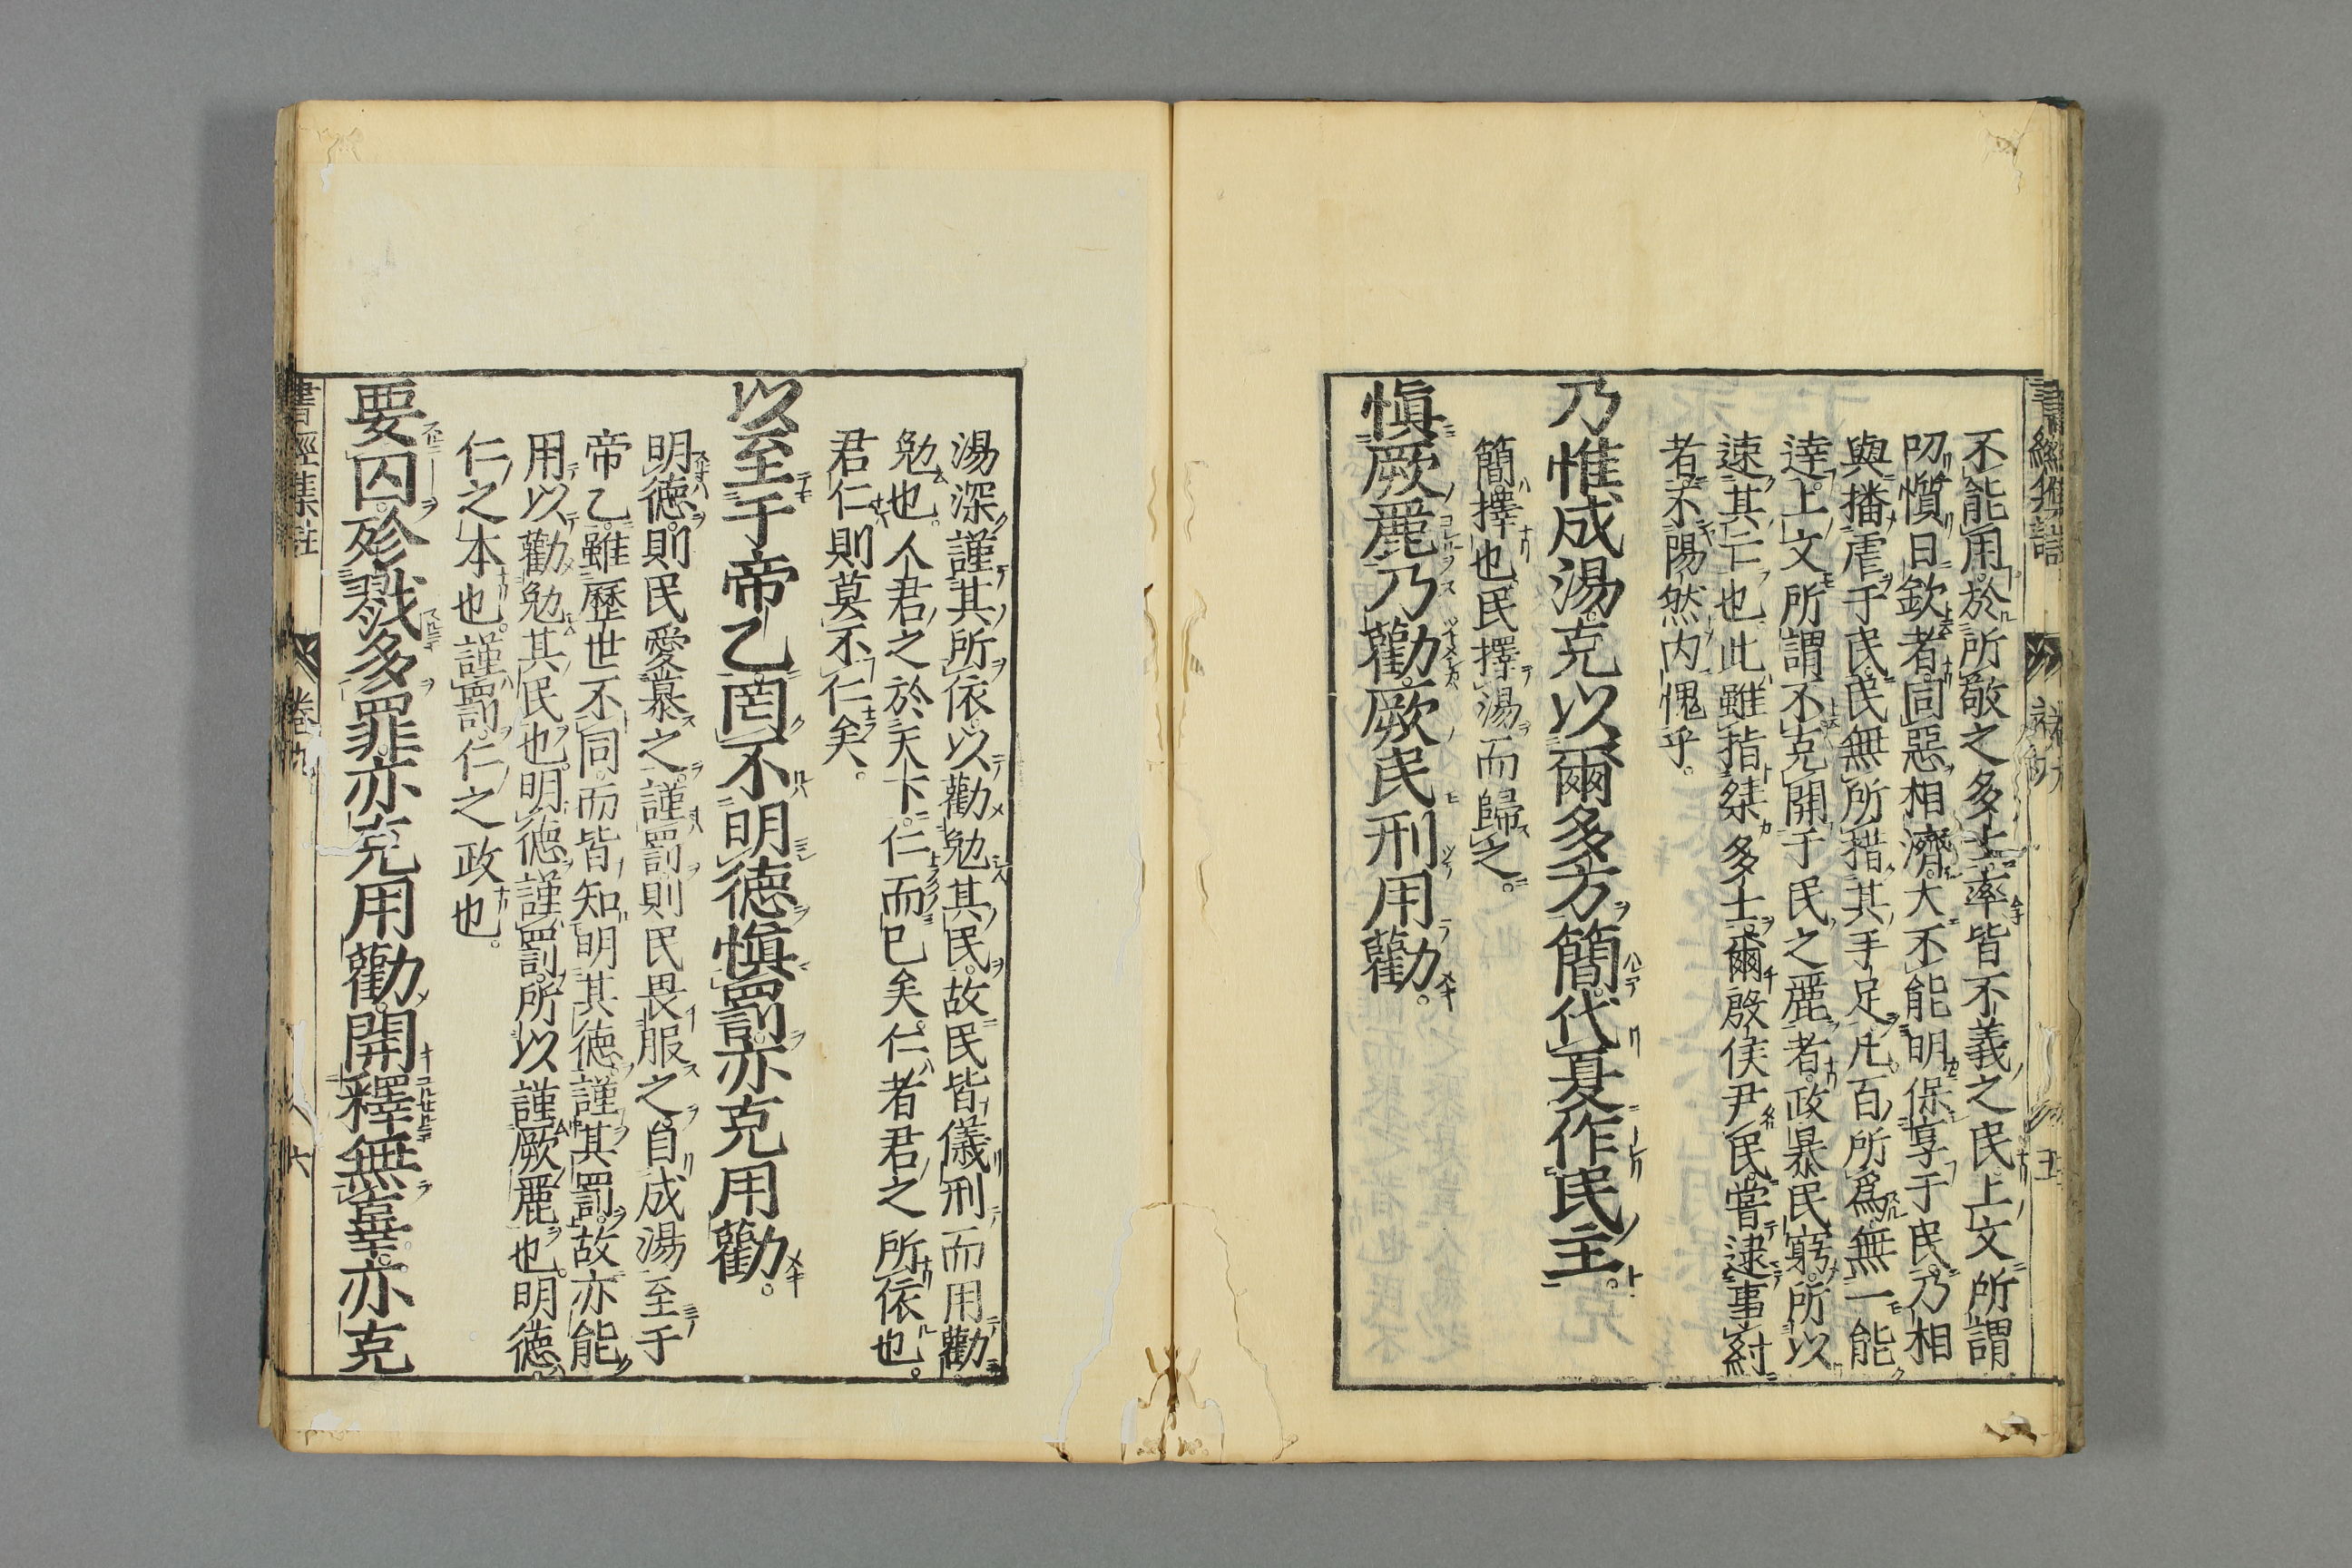 不能用於所敬之多士率皆不義之民上文所謂
叨懫日欽者同惡相濟大不能明保享于民乃相
與播虐于民民無所措其手足凡百所爲無一能
達上文所謂不克開于民之麗者政暴民窮所以
速其亡也此雖指桀多士爾啓侯尹民嘗逮事紂
者不惕然内愧乎。
乃惟成湯克以爾多方簡代夏作民主。
簡擇也民擇湯而歸之。
愼厥麗乃勸厥民刑用勸。
湯深謹其所依以勸勉其民故民皆儀刑而用勸
勉也。人君之於天下仁而已矣仁者君之所依也。
君仁則莫不仁矣。
以至于帝乙罔不明德愼罰亦克用勸。
明德則民愛慕之謹罰則民畏服之自成湯至于
帝乙雖歷世不同而皆知明其德謹其罰故亦能
用以勸勉其民也明德謹罰所以謹厥麗也明德
仁之本也謹罰仁之政也。
要囚殄戮多罪亦克用勸開釋無辜亦克
書經集註 卷九 六